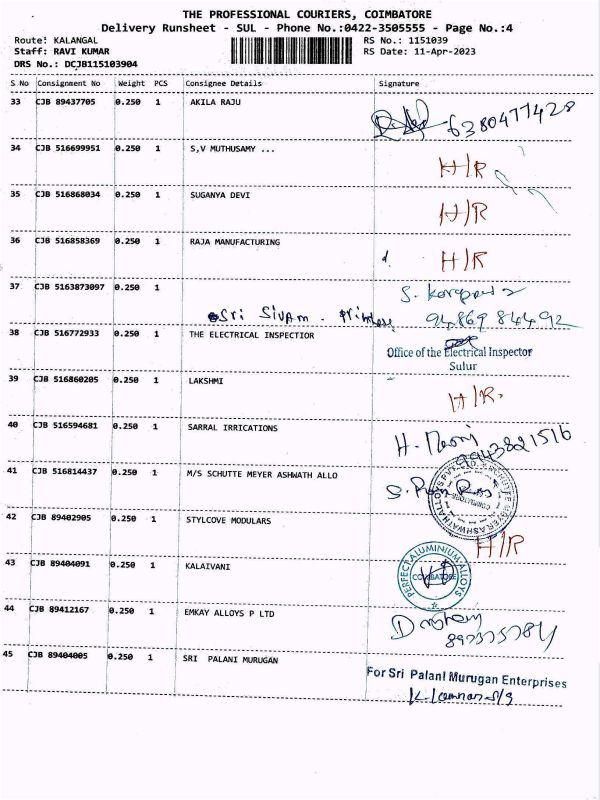 THE PROFESSIONAL COURIERS, COIMBATORE
Delivery Runsheet - SUL - Phone No.:0422-3505555 - Page No.:4
Route: KALANGAL RS No.: 1151039
Staff: RAVI KUMAR RS Date: 11-Apr-2023
DRS No.: DCJB115103904
S No Consignment No Weight PCS Consignee Details Signature
33 CJB 89437705 0.250 1 AKILA RAJU
6380477428
34 CJB 516699951 0.250 1 S,V MUTHUSAMY ... H/R
35 CJB 516868034 0.250 1 SUGANYA DEVI H/R
36 CJB 516858369 0.250 1 RAJA MANUFACTURING H/R
37 CJB 5163873097 0.250 1 S.
Sri Sivam - 94869 84492
38 CJB 516772933 0.250 1 THE ELECTRICAL INSPECTIOR
Office of the Electrical Inspector
Sulur
39 CJB 516860205 0.250 1 LAKSHMI H/R.
40 CJB 516594681 0.250 1 SARRAL IRRICATIONS H.
9943821516
41 CJB 516814437 0.250 1 M/S SCHUTTE MEYER ASHWATH ALLO S.
42 CJB 89402905 0.250 1 STYLCOVE MODULARS H/R
43 CJB 89404091 0.250 1 KALAIVANI
PERFECT ALUMINIUM ALLOYS
COIMBATORE
44 CJB 89412167 0.250 1 EMKAY ALLOYS P LTD
45 CJB 89404005 0.250 1 SRI PALANI MURUGAN
For Sri Palani Murugan Enterprises